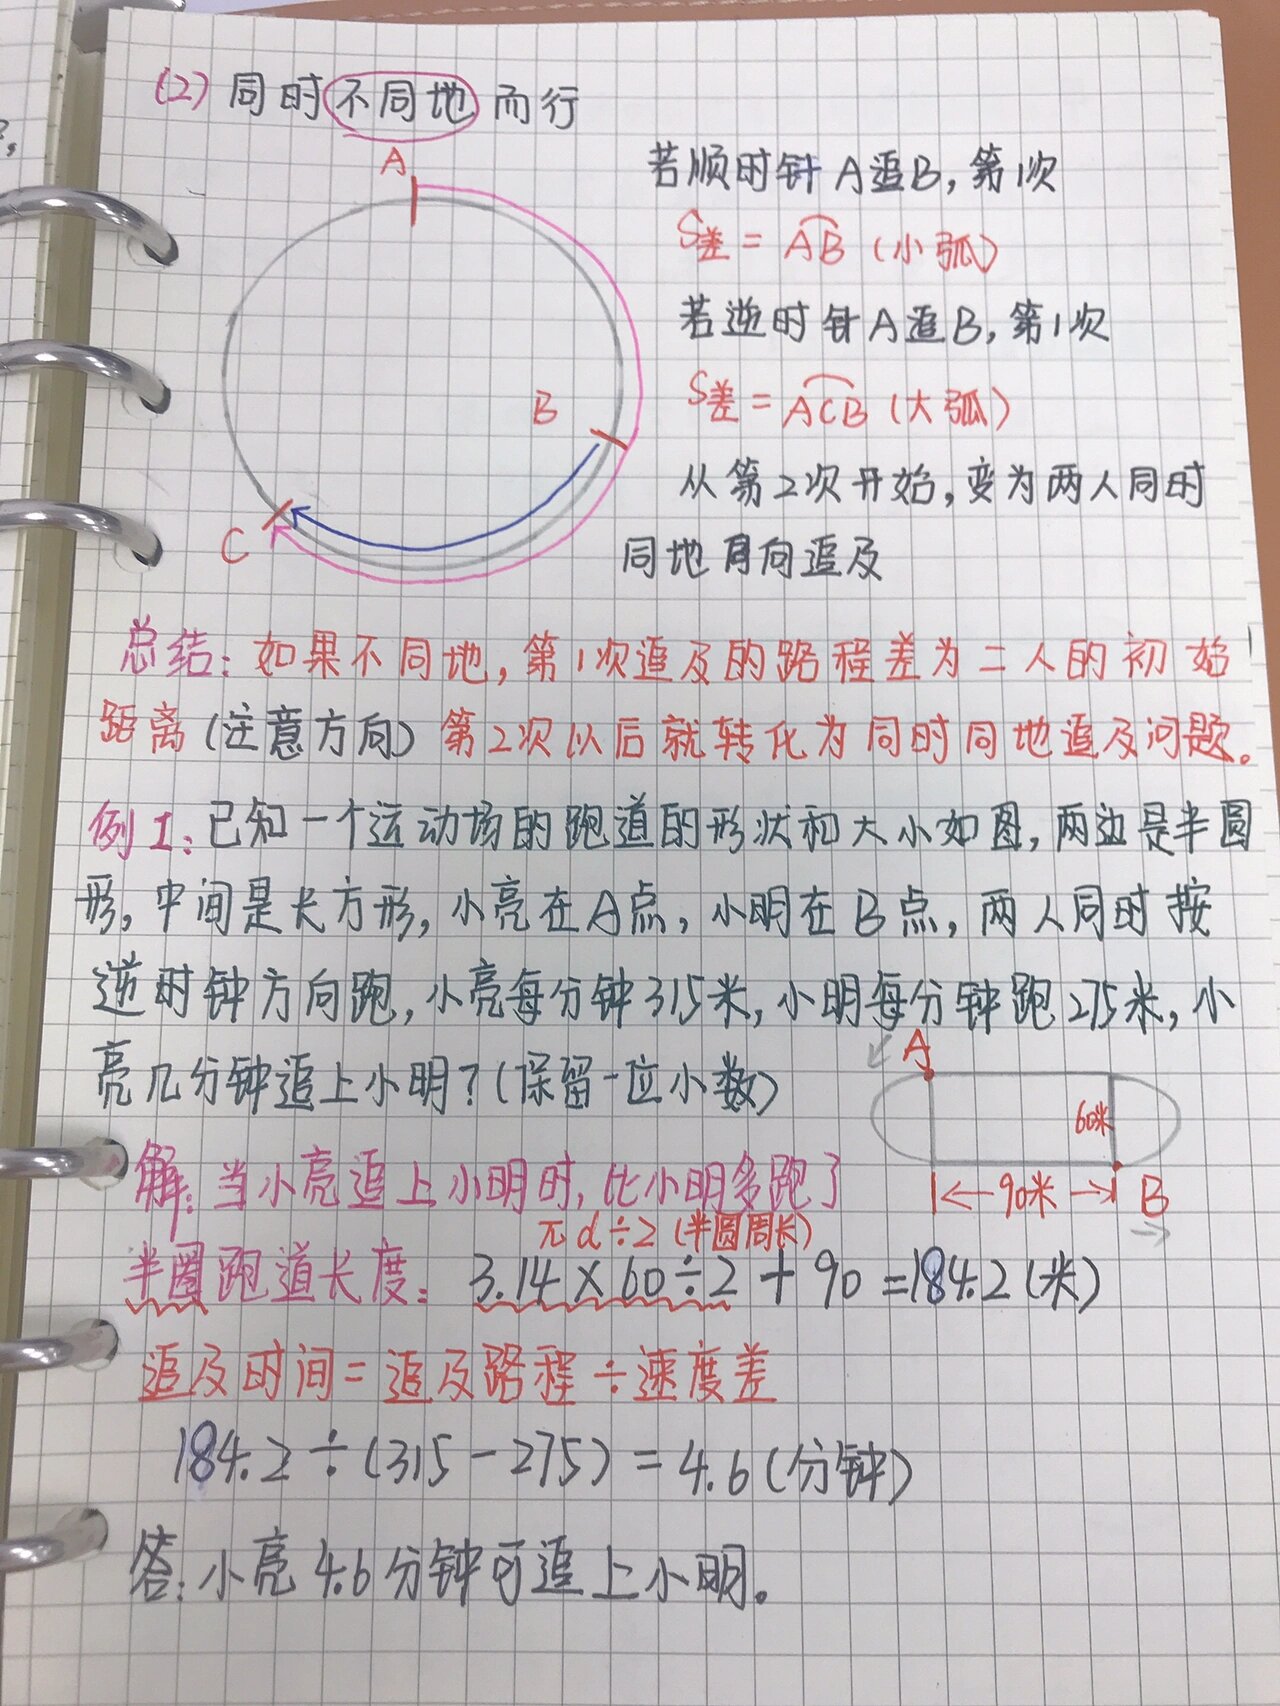 (2) 同时不同地而行
A
B
C
若顺时针A追B,第1次
S差 = AB (小弧)
若逆时针A追B,第1次
S差 = ACB (大弧)
从第2次开始,变为两人同时
同地同向追及
总结:如果不同地,第1次追及的路程差为二人的初始
距离(注意方向)第2次以后就转化为同时同地追及问题。
例1:已知一个运动场的跑道的形状和大小如图,两边是半圆
形,中间是长方形,小亮在A点,小明在B点,两人同时按
逆时钟方向跑,小亮每分钟315米,小明每分钟跑275米,小
亮几分钟追上小明?(保留一位小数)
A
60米
90米
B
解:当小亮追上小明时,比小明多跑了
πd÷2 (半圆周长)
半圈跑道长度: 3.14×60÷2+90=184.2(米)
追及时间=追及路程÷速度差
184.2÷(315-275)=4.6(分钟)
答:小亮4.6分钟可追上小明。